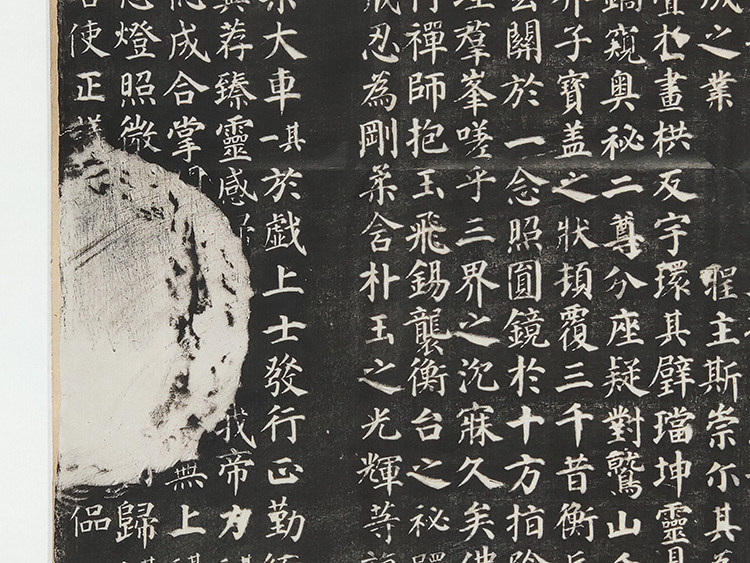 成之業 聖主斯崇尔其為
於畫栱反宇環其壁璫坤靈
鐍窺奧秘二尊分座疑對鷲山千
芥子寶盖之狀頓覆三千昔衡岳
玄關於一念照圓鏡於十方指陰
埋羣峯嗟乎三界之沉寐久矣佛
行禪師抱玉飛錫襲衡台之祕躅
戒忍為剛柔含朴玉之光輝等
乘大車其一於戲上士發行正勤
真荐臻靈感歸 我帝力
成合掌 無上
燈照微 歸
使正 品